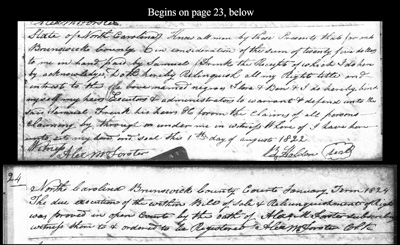 Begins on page 23, below
Alex McForster
State of North Carolina Know all men by these Presents that for and
Brunswick County in consideration of the sum of twenty five dollars
to me in hand paid by Samuel Frink the Receipt of which I do here
by acknowledge, I do hereby Relinquish all my Right title and
interest to the above named negroes Slave & Ben & I do hereby bind
myself my heirs Executors & administrators to warrant & defend unto the
said Samuel Frink his heirs & from the Claims of all persons
claiming by through or under me in witness where of I have here
unto set my hand and seal the 1th day of august 1822
Witness
Alex McForster B Holden Seal
24
North Carolina Brunswick County Court January Term 1824
The due execution of the within Bill of Sale & Relinquishment of Right
was proved in open Court by the oath of Alex McForster subscribing
witness there to & ordered to be Registered Alex McForster Clk